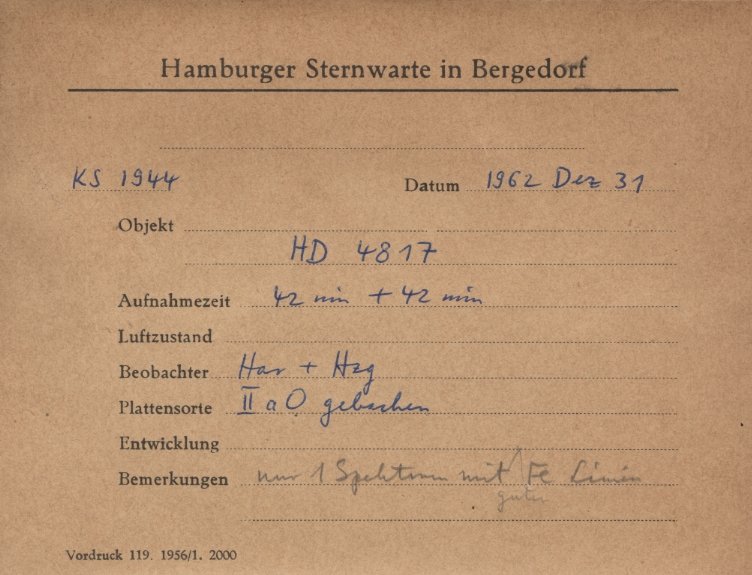 Hamburger Sternwarte in Bergedorf
KS 1944 Datum 1962 Dez 31
Objekt
HD 4817
Aufnahmezeit 42 min + 42 min
Luftzustand
Beobachter Har + Hzg
Plattensorte II a O gebacken
Entwicklung
Bemerkungen nur 1 Spektrum mit Fe Linien
guten
Vordruck 119. 1956/1. 2000